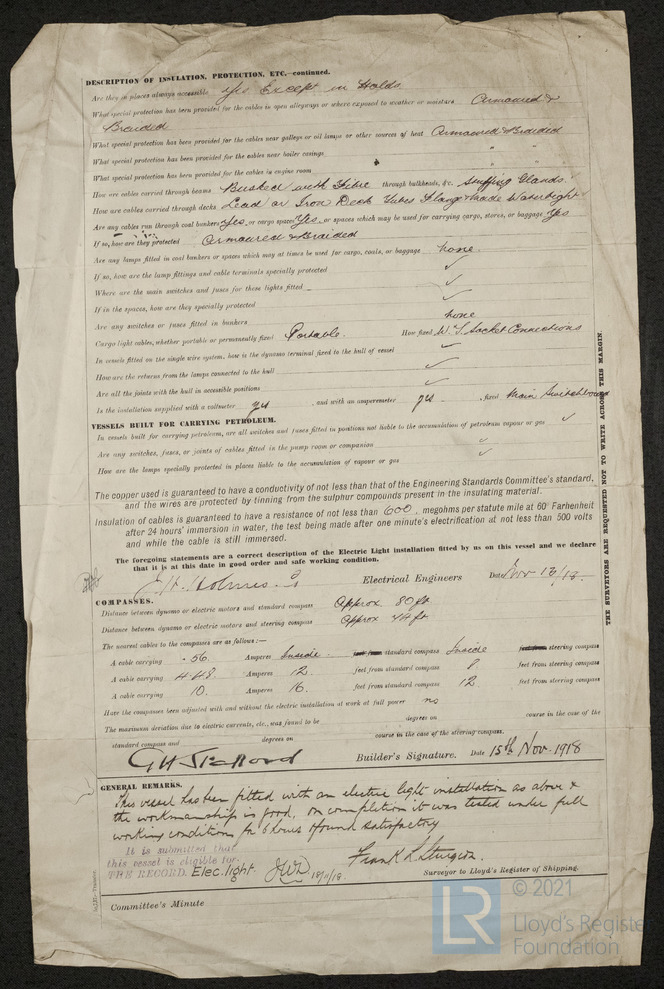 DESCRIPTION OF INSULATION, PROTECTION, ETC.—continued.
Are they in places always accessible yes Except in Holds
What special protection has been provided for the cables in open alleyways or where exposed to weather or moisture Armoured &
Braided
What special protection has been provided for the cables near galleys or oil lamps or other sources of heat Armoured & Braided
What special protection has been provided for the cables near boiler casings " "
What special protection has been provided for the cables in engine room " "
How are cables carried through beams Bushed with Fibre through bulkheads, &c. Stuffing Glands.
How are cables carried through decks Lead or Iron Deck Tubes Flange made Watertight
Are any cables run through coal bunkers yes or cargo spaces Yes or spaces which may be used for carrying cargo, stores, or baggage Yes
If so, how are they protected Armoured & Braided
Are any lamps fitted in coal bunkers or spaces which may at times be used for cargo, coals, or baggage none.
If so, how are the lamp fittings and cable terminals specially protected ✓
Where are the main switches and fuses for these lights fitted ✓
If in the spaces, how are they specially protected ✓
Are any switches or fuses fitted in bunkers none
Cargo light cables, whether portable or permanently fixed Portable. How fixed W.T. Socket Connections
In vessels fitted on the single wire system, how is the dynamo terminal fixed to the hull of vessel ✓
How are the returns from the lamps connected to the hull ✓
Are all the joints with the hull in accessible positions ✓
Is the installation supplied with a voltmeter yes , and with an amperemeter yes , fixed Main Switchboard
VESSELS BUILT FOR CARRYING PETROLEUM.
In vessels built for carrying petroleum, are all switches and fuses fitted in positions not liable to the accumulation of petroleum vapour or gas ✓
Are any switches, fuses, or joints of cables fitted in the pump room or companion ✓
How are the lamps specially protected in places liable to the accumulation of vapour or gas ✓
The copper used is guaranteed to have a conductivity of not less than that of the Engineering Standards Committee's standard,
and the wires are protected by tinning from the sulphur compounds present in the insulating material.
Insulation of cables is guaranteed to have a resistance of not less than 600 megohms per statute mile at 60° Farhenheit
after 24 hours' immersion in water, the test being made after one minute's electrification at not less than 500 volts
and while the cable is still immersed.
The foregoing statements are a correct description of the Electric Light installation fitted by us on this vessel and we declare
that it is at this date in good order and safe working condition.
J. H. Holmes Electrical Engineers Date Nov 13/18.
COMPASSES.
Distance between dynamo or electric motors and standard compass Approx 80 ft
Distance between dynamo or electric motors and steering compass Approx 74 ft
The nearest cables to the compasses are as follows:—
A cable carrying .56 Amperes Inside feet from standard compass Inside feet from steering compass
A cable carrying 4.48 Amperes 12 feet from standard compass 8 feet from steering compass
A cable carrying 10. Amperes 16. feet from standard compass 12 feet from steering compass
Have the compasses been adjusted with and without the electric installation at work at full power no
The maximum deviation due to electric currents, etc., was found to be degrees on course in the case of the
standard compass and degrees on course in the case of the steering-compass.
Builder's Signature. Date 15th Nov. 1918
GENERAL REMARKS.
This vessel has been fitted with an electric light installation as above &
the workmanship is good, on completion it was tested under full
working conditions for 6 hours & found satisfactory
It is submitted that
this vessel is eligible for
THE RECORD. Elec. light. 18/11/18.
Frank L. Sturgeon.
Surveyor to Lloyd's Register of Shipping.
Committee's Minute
THE SURVEYORS ARE REQUESTED NOT TO WRITE ACROSS THIS MARGIN.
LR
© 2021
Lloyd's Register
Foundation